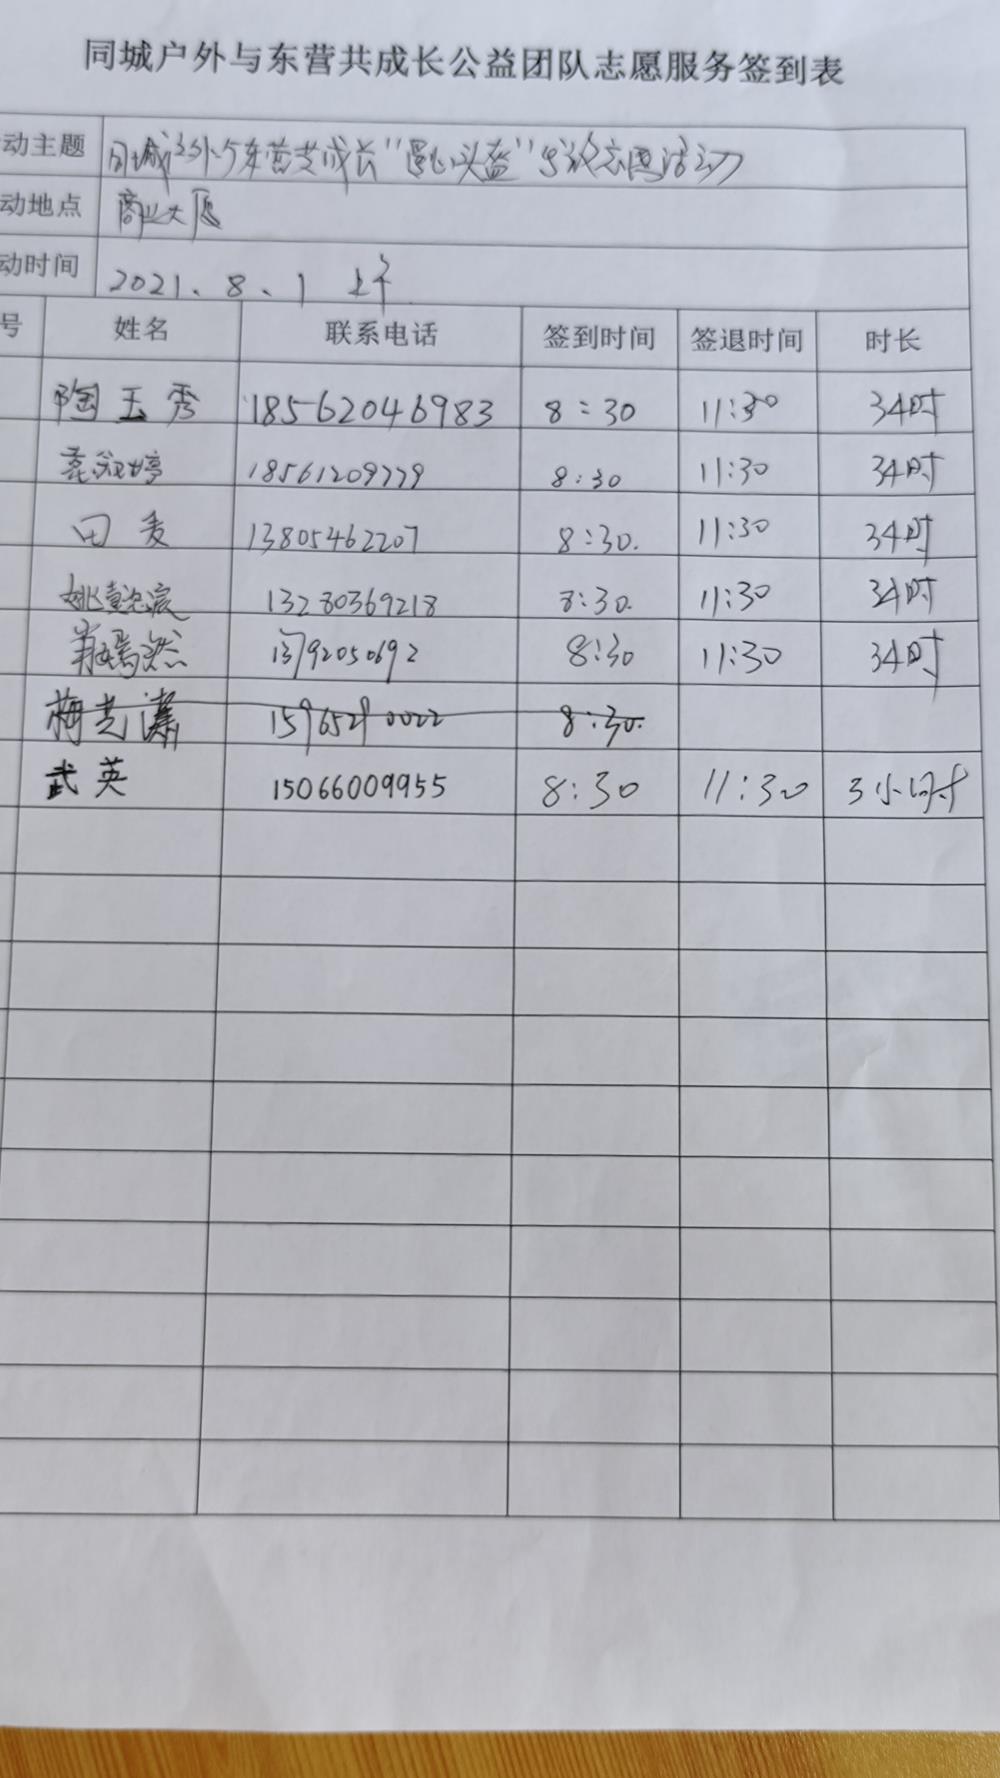 同城户外与东营共成长公益团队志愿服务签到表
动主题 同城户外与东营共成长"头盔"发放志愿活动
动地点 商业大厦
动时间 2021.8.1 上午
号 姓名 联系电话 签到时间 签退时间 时长
陶玉秀 18562046983 8:30 11:30 3小时
婷 18561209779 8:30 11:30 3小时
田麦 13805462207 8:30. 11:30 3小时
姚 13280369218 8:30. 11:30 3小时
肖嫣然 13792050692 8:30 11:30 3小时
梅艺潇 15965290022 8:30.
武英 15066009955 8:30 11:30 3小时